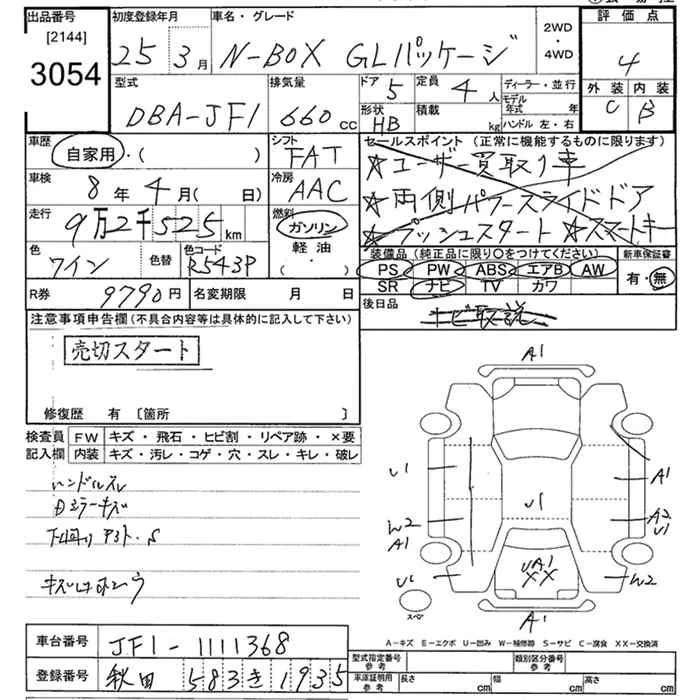 出品番号 初度登録年月 車名・グレード 2WD・4WD 評価点
[2144]
3054 25年3月 N-BOX GLパッケージ 4
型式 排気量 ドア 5 定員 4人 ディーラー・並行 外装 内装
DBA-JF1 660cc 形状 HB 積載 kg モデル年式 年 C B
ハンドル 左・右
車歴 自家用・( ) シフト FAT セールスポイント (正常に機能するものに限ります)
★ユーザー買取り車
車検 8年4月( 日) 冷房 AAC ★両側パワースライドドア
走行 9万2千525km 燃料 ガソリン 軽油 ・( ) ★プッシュスタート ★スマートキー
色 ワイン 色替 色コード R543P 装備品 (純正品に限り○をつけてください) 新車保証書
PS PW ABS エアB AW 有・無
SR ナビ TV カワ
R券 9790円 名変期限 月 日 後日品 ナビ取説
注意事項申告欄(不具合内容等は具体的に記入して下さい)
売切スタート
修復歴 有 [箇所 ]
検査員記入欄 FW キズ・飛石・ヒビ割・リペア跡・×要
内装 キズ・汚レ・コゲ・穴・スレ・キレ・破レ
ハンドルスレ
Dミラーキズ
下回り
A1
U1 A1
U1
W2 A2
A1 U1
UA1
XX
U1 W2
スペア
A1
A-キズ E-エクボ U-凹み W-補修跡 S-サビ C-腐食 XX-交換済
車台番号 JF1-1111368
登録番号 秋田 583 き 1935
型式指定番号参考 類別区分番号参考
車庫証明用参考 長さ cm 幅 cm 高さ cm